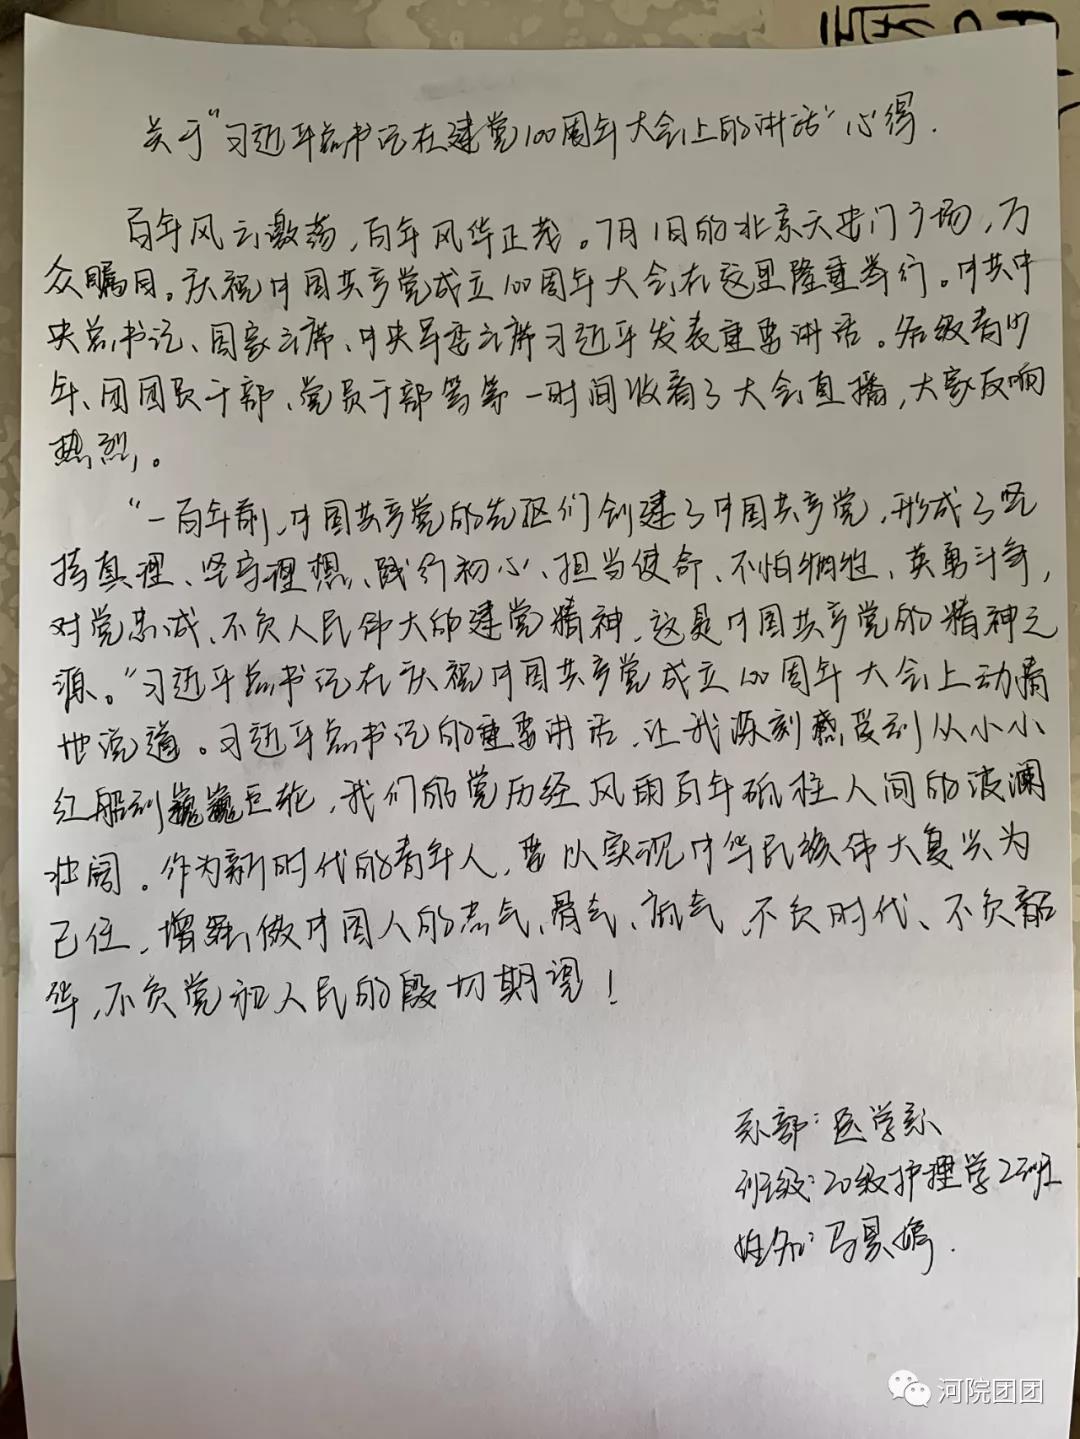 关于“习近平总书记在建党100周年大会上的讲话”心得.
百年风云激荡,百年风华正茂。7月1日的北京天安门广场,万
众瞩目。庆祝中国共产党成立100周年大会在这里隆重举行。中共中
央总书记、国家主席、中央军委主席习近平发表重要讲话。各级青少
年、团团员干部、党员干部等等一时间收看了大会直播,大家反响
热烈。
“一百年前,中国共产党的先驱们创建了中国共产党,形成了坚
持真理、坚守理想、践行初心、担当使命、不怕牺牲、英勇斗争,
对党忠诚、不负人民伟大的建党精神,这是中国共产党的精神之
源。”习近平总书记在庆祝中国共产党成立100周年大会上动情
地说道。习近平总书记的重要讲话,让我深刻感受到从小小
红船到巍巍巨轮,我们的党历经风雨百年砥柱人间的波澜
壮阔。作为新时代的青年人,要以实现中华民族伟大复兴为
己任,增强做中国人的志气、骨气、底气,不负时代、不负韶
华,不负党和人民的殷切期望!
系部:医学系
班级:20级护理学2班
姓名:马
河院团团